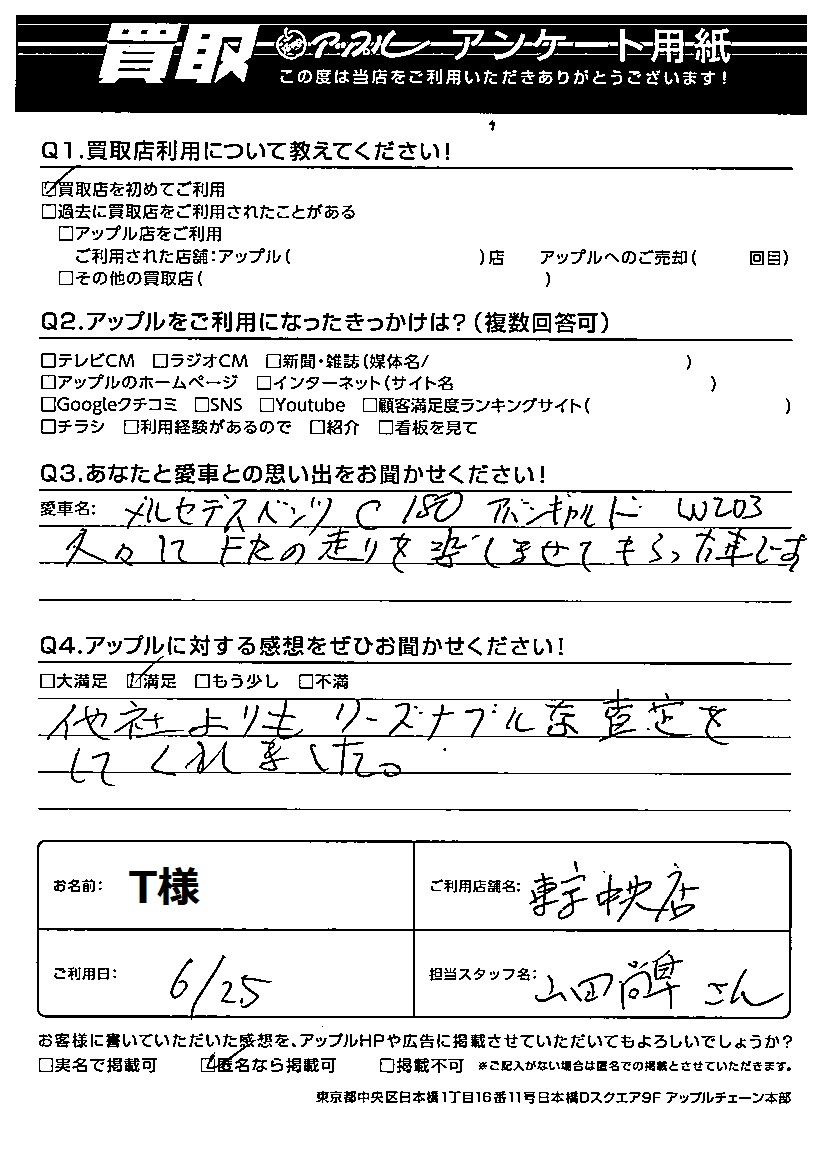 買取 アップル アンケート用紙
この度は当店をご利用いただきありがとうございます!
Q1.買取店利用について教えてください!
☑買取店を初めてご利用
□過去に買取店をご利用されたことがある
□アップル店をご利用
ご利用された店舗:アップル( )店 アップルへのご売却( 回目)
□その他の買取店( )
Q2.アップルをご利用になったきっかけは?(複数回答可)
□テレビCM □ラジオCM □新聞・雑誌(媒体名/ )
□アップルのホームページ □インターネット(サイト名 )
□Googleクチコミ □SNS □Youtube □顧客満足度ランキングサイト( )
□チラシ □利用経験があるので □紹介 □看板を見て
Q3.あなたと愛車との思い出をお聞かせください!
愛車名: メルセデスベンツ C 180 アバンギャルド W203
久々にFRの走りを楽しませてもらった車です
Q4.アップルに対する感想をぜひお聞かせください!
□大満足 ☑満足 □もう少し □不満
他社よりもリーズナブルな査定を
してくれました。
お名前: T様
ご利用店舗名: 東京中央店
ご利用日: 6/25
担当スタッフ名: 山田 さん
お客様に書いていただいた感想を、アップルHPや広告に掲載させていただいてもよろしいでしょうか?
□実名で掲載可 ☑匿名なら掲載可 □掲載不可 ※ご記入がない場合は匿名での掲載とさせていただきます。
東京都中央区日本橋1丁目16番11号日本橋Dスクエア9F アップルチェーン本部